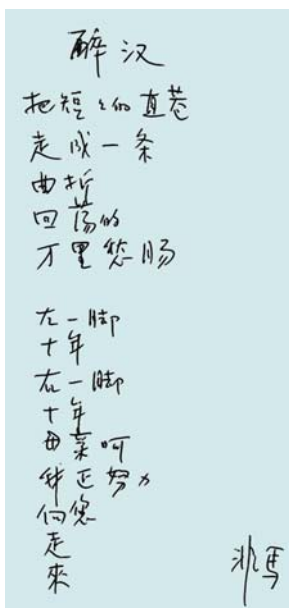 醉汉
把短々的直巷
走成一条
曲折
回荡的
万里愁肠
左一脚
十年
右一脚
十年
母亲呵
我正努力
向您
走
來
非馬